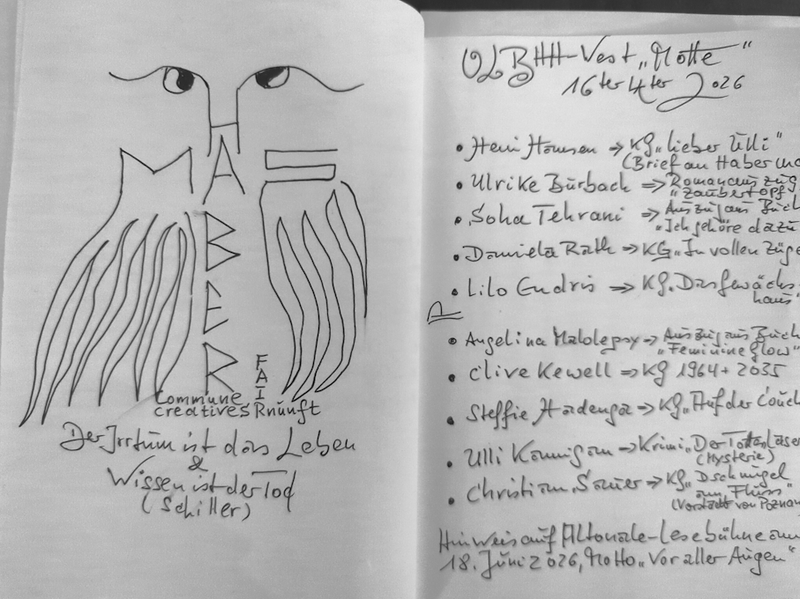 ABER
FAIR
Commune
creatives Rnünft
Der Irrtum ist das Leben
&
Wissen ist der Tod
(Schiller)
OLBHH-Vest „Motte"
16ter 4ter 2026
• Heni Hansen → KG „lieber Ulli"
(Brief an Haberma
• Ulrike Burbach → Romanauszug
„Zaubertopf
• Soha Tehrani → Auszug aus Buch
„Ich gehöre dazu
• Daniela Rath → KG „In vollen Züge
• Lilo Endris → KG „Das Gewächs-
haus"
P
• Angelina Malolepsy → Auszug aus Buch
„Feminine Glow"
• Clive Kewell → KG 1964 + 2035
• Steffie Hardenga → KG „Auf der Couch
• Ulli Konnigam → Krimi „Der
(Hysterie)
• Christian Sauer → KG „Dschungel
am Fluss"
(Vorstadt von Poznan
Hinweis auf Altonale-Lesebühne am
18. Juni 2026, Motto „Vor aller Augen"